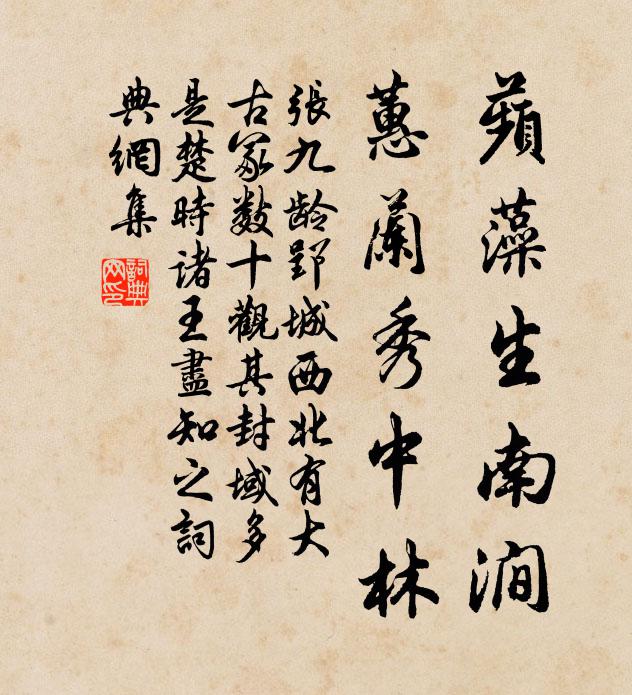 蘋藻生南澗
蕙蘭秀中林
張九齡郢城西北有大
古冢數十觀其封域多
是楚時諸王盡知之詞
典網集
詞典
网印